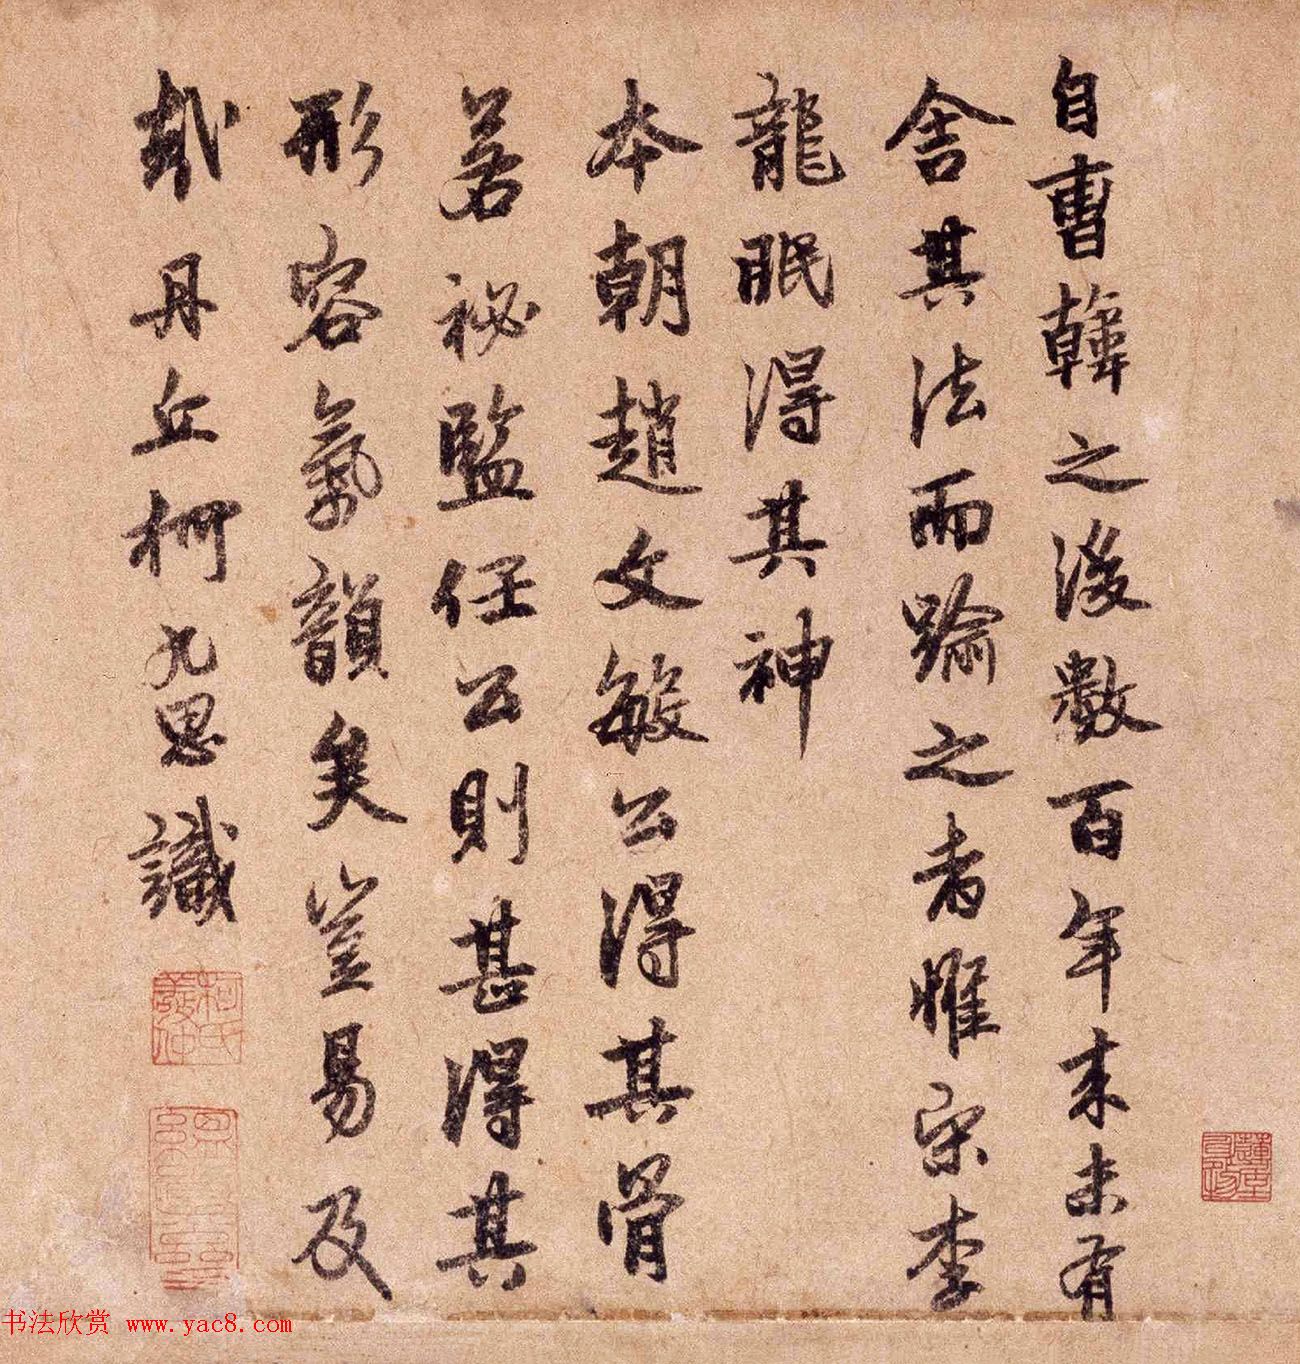 自曹韓之後數百年來未有
舍其法而踰之者惟宋李
龍眠得其神
本朝趙文敏公得其骨
若祕監任公則甚得其
形容氣韻矣豈易及
哉丹丘柯九思識
柯氏敬仲
书法欣赏 www.yac8.com